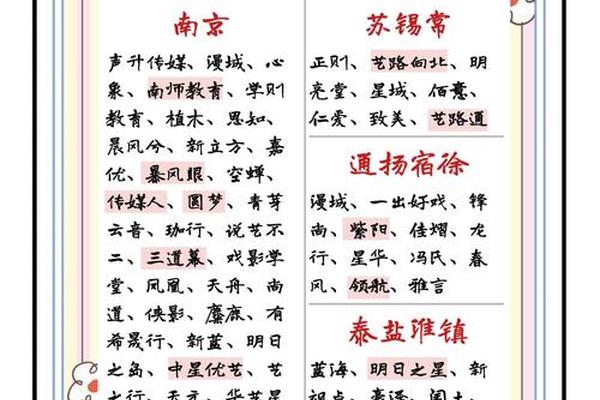 南京
声升传媒、漫域、心
象、南师教育、学则
教育、植木、思知、
晨风兮、新立方、嘉
优、暴风眼、空蝉、
传媒人、圆梦、青芽
云音、珈行、说艺不
二、三道幕、戏影学
堂、凤凰、天舟、尚
道、侠影、麋鹿、有
希晟行、新蓝、明日
之岛、中星优艺、艺
之行、天元、华艺星
苏锡常
正则、艺路向北、明
亮堂、星域、佰意、
仁爱、致美、艺路通
通扬宿徐
漫域、一出好戏、锋
尚、紫阳、佳熠、龙
行、星华、冯氏、春
风、领航、雅言
泰盐淮镇
蓝海、明日之星、新
视点、豪泽、闰土、